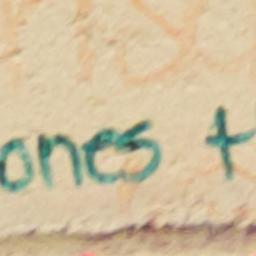 ones t